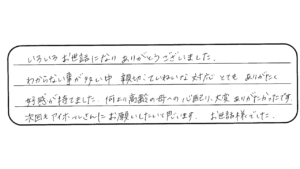 いろいろお世話になりありがとうございました。
わからない事が多い中 親切、ていねいな対応 とても ありがたく
好感が持てました。何より高齢の母への心配り、大変ありがたかったです
次回もアイホールさんにお願いしたいて思います。 お世話様でした。